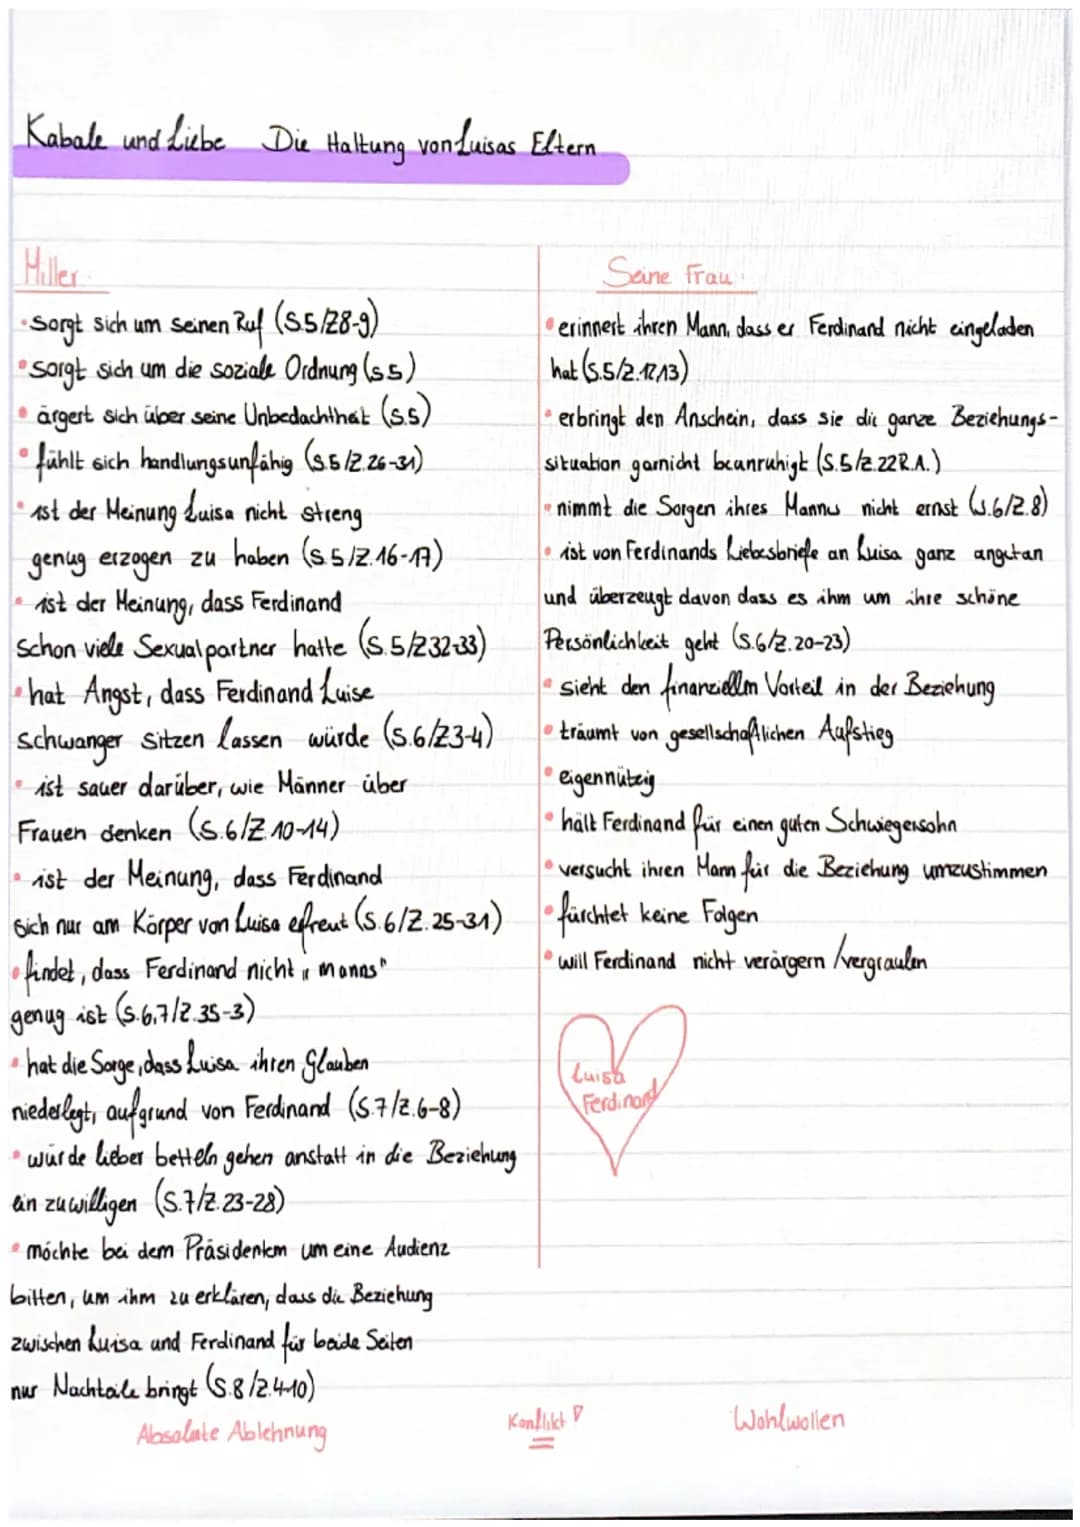 Kabale und Liebe Die Haltung von Luisas Eltern
Miller
• sorgt sich um seinen Ruf (S.5/Z8-9)
• sorgt sich um die soziale Ordnung (S.5)
• ärgert sich über seine Unbedachtheit (S.5)
• fühlt sich handlungsunfähig (S.5/Z.26-31)
• ist der Meinung Luisa nicht streng
genug erzogen zu haben (S.5/Z.16-17)
• ist der Meinung, dass Ferdinand
schon viele Sexualpartner hatte (S.5/Z32-33)
• hat Angst, dass Ferdinand Luise
schwanger sitzen lassen würde (S.6/Z3-4)
• ist sauer darüber, wie Männer über
Frauen denken (S.6/Z.10-14)
• ist der Meinung, dass Ferdinand
sich nur am Körper von Luisa efreut (S.6/Z.25-31)
• findet, dass Ferdinand nicht "manns"
genug ist (S.6,7/Z.35-3)
• hat die Sorge, dass Luisa ihren Glauben
niederlegt, aufgrund von Ferdinand (S.7/Z.6-8)
• würde lieber betteln gehen anstatt in die Beziehung
ein zu willigen (S.7/Z.23-28)
• möchte bei dem Präsidenten um eine Audienz
bitten, um ihm zu erklären, dass die Beziehung
zwischen Luisa und Ferdinand für beide Seiten
nur Nachteile bringt (S.8/Z.4-10)
Absolute Ablehnung
Seine Frau:
• erinnert ihren Mann, dass er Ferdinand nicht eingeladen
hat (S.5/Z.12,13)
• erbringt den Anschein, dass sie die ganze Beziehungs-
situation garnicht beunruhigt (S.5/Z.22R.A.)
• nimmt die Sorgen ihres Mannes nicht ernst (S.6/Z.8)
• ist von Ferdinands Liebesbriefe an Luisa ganz angetan
und überzeugt davon dass es ihm um ihre schöne
Persönlichkeit geht (S.6/Z.20-23)
• sieht den finanziellen Vorteil in der Beziehung
• träumt von gesellschaftlichen Aufstieg
• eigennützig
• hält Ferdinand für einen guten Schwiegersohn
• versucht ihren Mann für die Beziehung umzustimmen
• fürchtet keine Folgen
• will Ferdinand nicht verärgern /vergraulen
Luisa
Ferdinand
Konflikt !
Wohlwollen